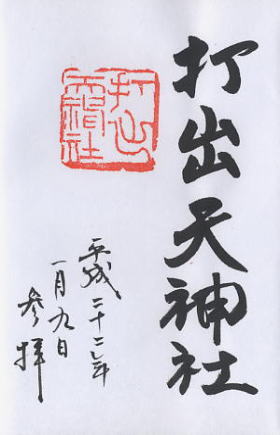 打出天神社
打出
天神社
平成二十二年
一月九日
参拝